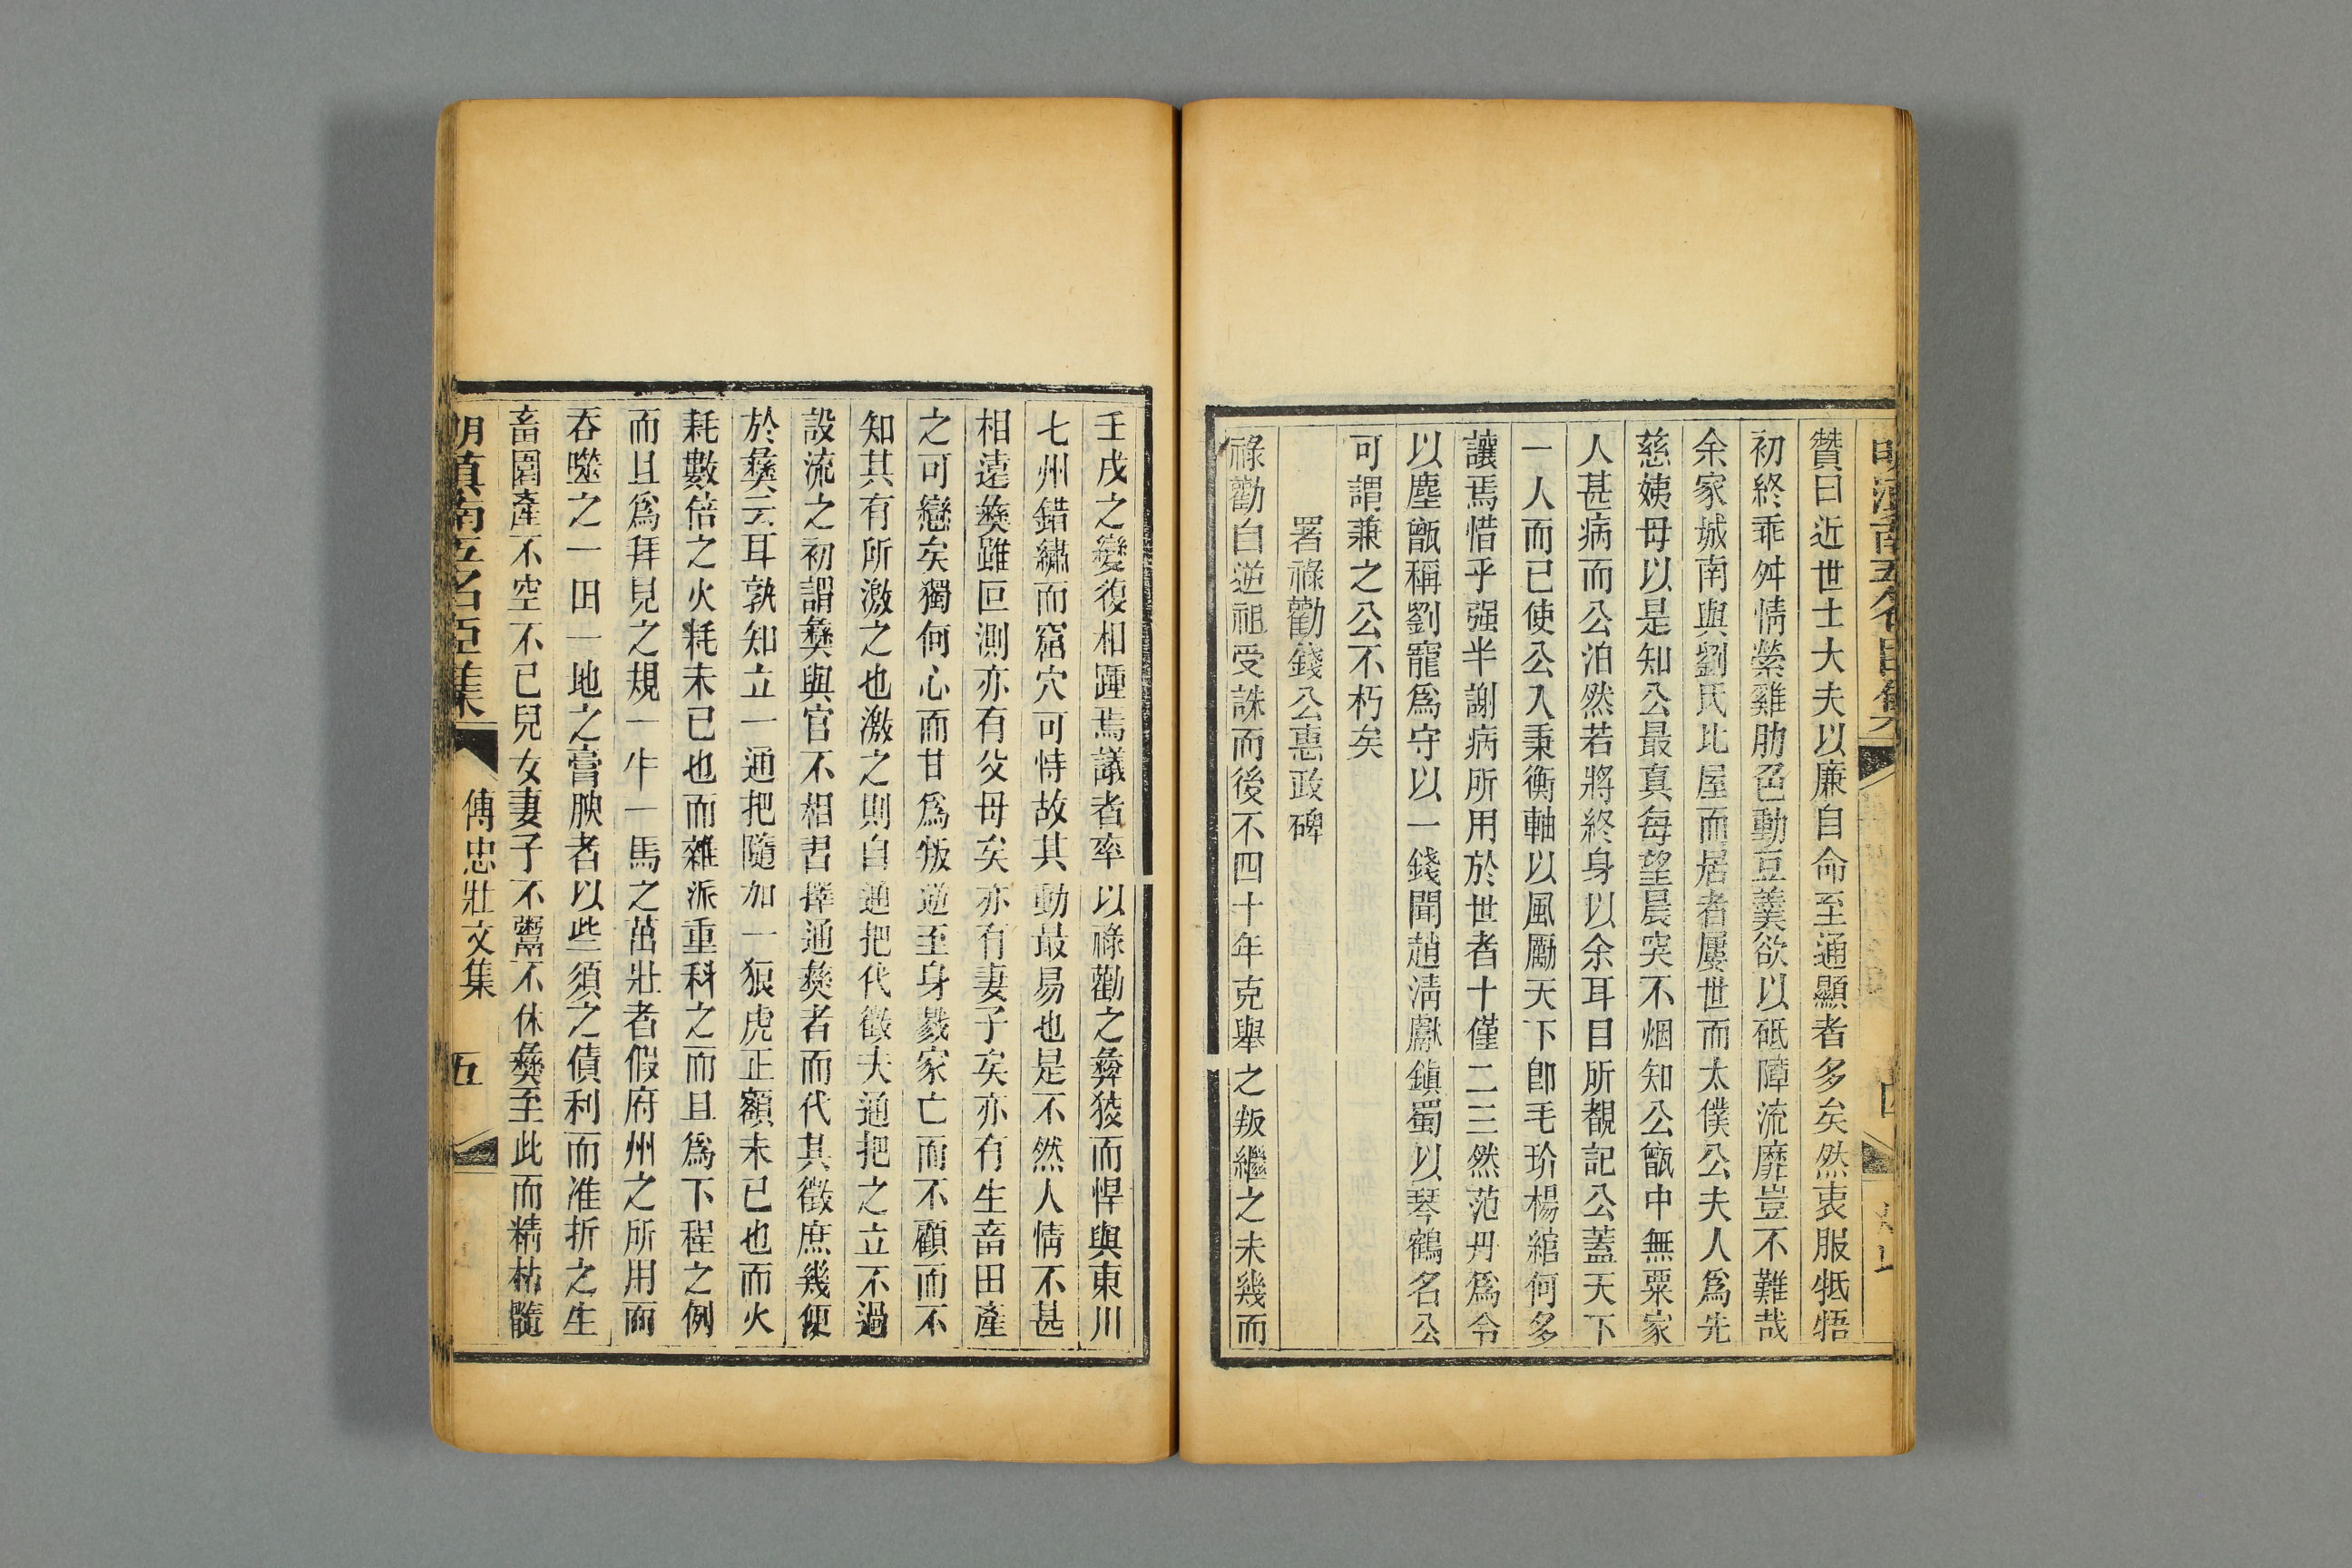 贊曰近世士大夫以廉自命至通顯者多矣然衷服牴牾
初終乖舛情縈雞肋色動豆羹欲以砥障流靡豈不難哉
余家城南與劉氏比屋而居者屢世而太僕公夫人爲先
慈姨母以是知公最真每望晨突不烟知公甑中無粟家
人甚病而公泊然若將終身以余耳目所覩記公蓋天下
一人而已使公入秉衡軸以風勵天下卽毛玠楊綰何多
讓焉惜乎强半謝病所用於世者十僅二三然范丹爲令
以塵甑稱劉寵爲守以一錢聞趙淸獻鎮蜀以琴鶴名公
可謂兼之公不朽矣
署祿勸錢公惠政碑
祿勸自逆祖受誅而後不四十年克舉之叛繼之未幾而
壬戌之變復相踵焉議者率以祿勸之彝狡而悍與東川
七州錯繡而窟穴可恃故其動最易也是不然人情不甚
相遠彝雖叵測亦有父母矣亦有妻子矣亦有生畜田產
之可戀矣獨何心而甘爲叛逆至身戮家亡而不顧而不
知其有所激之也激之則自通把代徵夫通把之立不過
設流之初謂彝與官不相習擇通彝者而代其徵庶幾便
於彝云耳孰知立一通把隨加一狼虎正額未已也而火
耗數倍之火耗未已也而雜派重科之而且爲下程之例
而且爲拜見之規一牛一馬之茁壯者假府州之所用而
吞噬之一田一地之膏腴者以些須之債利而准折之生
畜圈產不空不已兒女妻子不鬻不休彝至此而精枯髓
明滇南五名臣集
傅忠壯文集
五